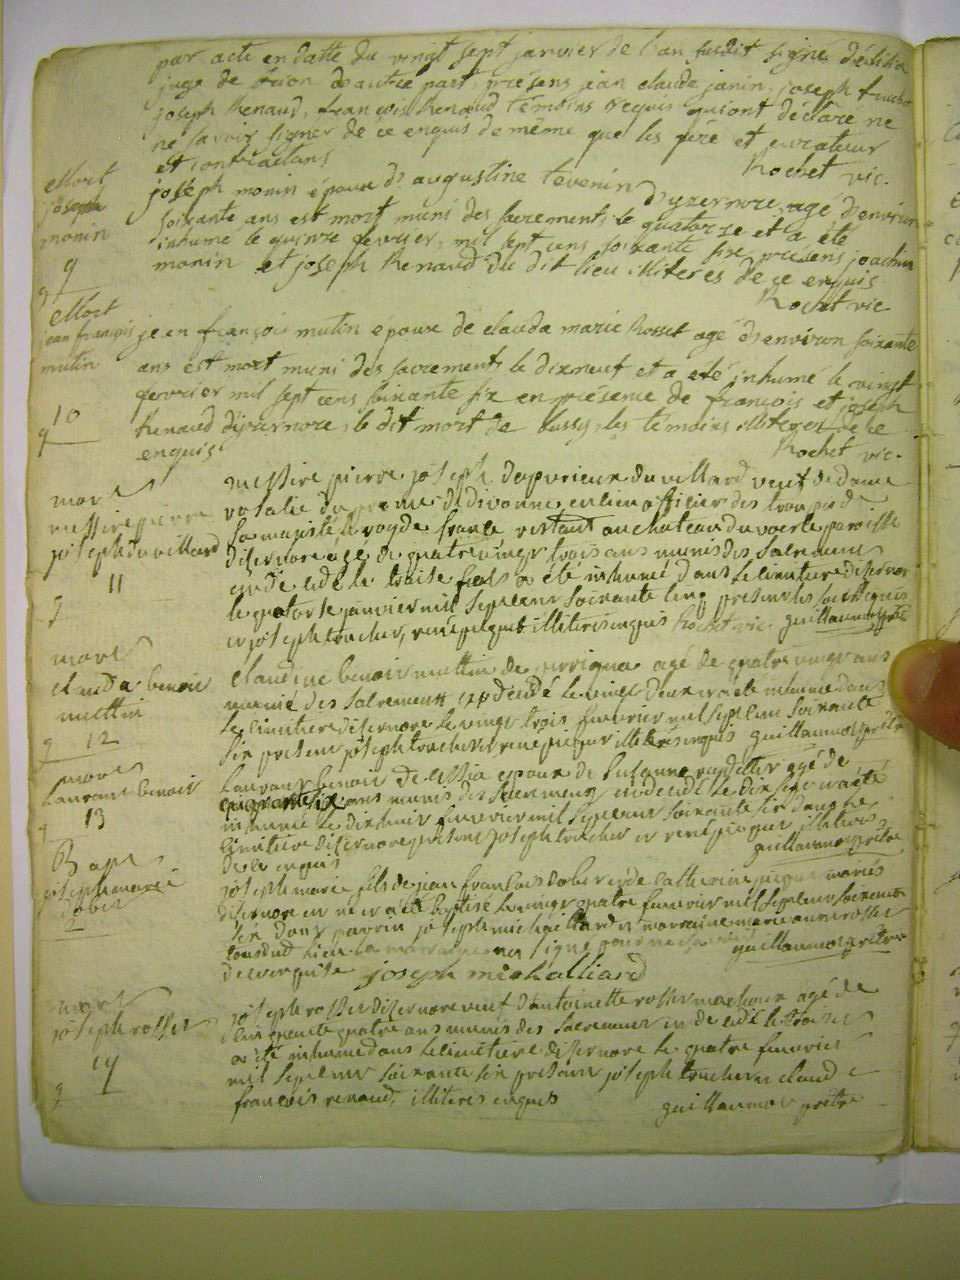 par acte en datte du vingt sept janvier de l'an susdit signé
juge de de autre part, présens jean claude janin, joseph
joseph Renaud, françois Renaud témoins requis qui ont déclaré ne
ne savoir signer de ce enquis de même que les père et curateur
et contractans
Rochet vic.
Mort
joseph
monin
9
joseph monin époux d'augustine tevenin d'yzernore, agé d'environ
soixante ans est mort muni des sacrements, le quatorze et a été
inhumé le quinze fevrier, mil sept cens soixante six, présens joachim
monin et joseph Renaud du dit lieu illiteres de ce enquis
Rochet vic
Mort
jean françois
mutin
10
jean françois mutin epoux de clauda marie Rosset agé d'environ soixante
ans est mort muni des sacrements le dixneuf et a été inhumé le vingt
fevrier mil sept cens soixante six en présence de françois et joseph
Renaud d'izernore, le dit mort de bussy, les témoins illiteres de ce
enquis
Rochet vic.
mort
messire pierre
joseph du villard
11
messire pierre joseph du villard veuf de dame
rosalie de divonne en officier des troupes de
sa majesté le roy de france restant au chateau du voerle paroisse
disernore agé de quatre vingt trois ans munis des sacremens
le treise a été inhumé dans le cimitiere disernor
le quatorse janvier mil sept cens soixante cinq presens les
et joseph tocher, rene piquet illiteres enquis Rochet vic. guillaumot prêtre
mort
clauda benoit
mettin
12
claudine benoit mettin de perrigna agé de quatre vingt ans
munié des sacremens et decedé le vingt deux a été inhumé dans
le cimitiere disernore le vingt trois fevrier mil sept cens soixante
six presens joseph tocher et rene piquet illiteres enquis guillaumot prêtre
mort
laurant benoit
13
laurant benoit de lessia epoux de Susanne agé de
quarante six ans munis des sacremens decedé le dix sept a été
inhumé le dix huit fevrier mil sept cens soixante six dans le
cimitiere disernore presens joseph tocher et rene piquet illiteres
de ce enquis
guillaumot prêtre
Bapt
joseph marie
dober
2
joseph marie fils de jean françois dober et de catherine piquet mariés
disernore est né et a été baptisé le vingt quatre fevrier mil sept cens soixante
six dont parrin joseph michailliard et marraine marie anne rosset
tous dud lieu la marraine
de ce enquise joseph michalliard
guillaumot prêtre
mort
joseph rosset
14
joseph rosset disernore veuf d'antoinette rosset agé de
cinquante quatre ans munis des sacremens et decedé le trois
a été inhumé dans le cimitiere disernore le quatre fevrier
mil sept cens soixante six presens joseph tocher et claud
françois renaud, illiteres enquis
guillaumot prêtre